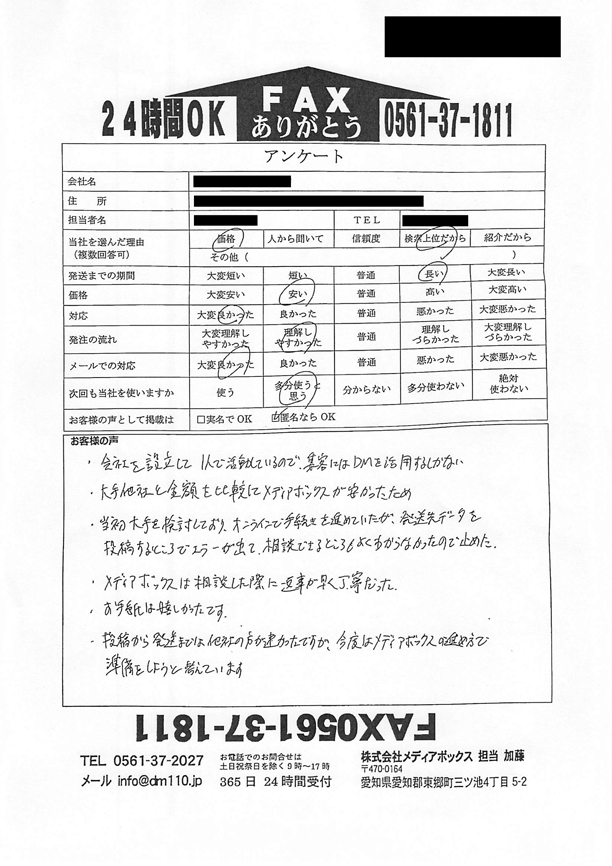 24時間OK
FAX
ありがとう
0561-37-1811
アンケート
会社名
住 所
担当者名 TEL
当社を選んだ理由 価格 人から聞いて 信頼度 検索上位だから 紹介だから
(複数回答可) その他 ( )
発送までの期間 大変短い 短い 普通 長い 大変長い
価格 大変安い 安い 普通 高い 大変高い
対応 大変良かった 良かった 普通 悪かった 大変悪かった
発注の流れ 大変理解しやすかった 理解しやすかった 普通 理解しづらかった 大変理解しづらかった
メールでの対応 大変良かった 良かった 普通 悪かった 大変悪かった
次回も当社を使いますか 使う 多分使うと思う 分からない 多分使わない 絶対使わない
お客様の声として掲載は □実名でOK ☑匿名ならOK
お客様の声
・会社を設立して1人で活動しているので、集客にはDMを活用するしかない
・大手他社と金額を比較しメディアボックスが安かったため
・当初大手を検討しており、オンラインで手続きを進めていたが、発送先データを
投稿するところでエラーが出て、相談できるところもよくわからなかったので止めた。
・メディアボックスは相談した際に返事が早く丁寧だった。
・お手紙は嬉しかったです。
・投稿から発送までは他社の方が速かったですが、今度はメディアボックスの進め方で
準備をしようと考えています
FAX0561-37-1811
TEL 0561-37-2027 お電話でのお問合せは 株式会社メディアボックス 担当 加藤
土日祝祭日を除く9時〜17時 〒470-0164
メール info@dm110.jp 365日 24時間受付 愛知県愛知郡東郷町三ツ池4丁目 5-2